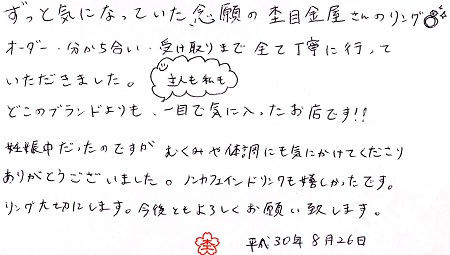 ずっと気になっていた念願の杢目金屋さんのリング
オーダー・分かち合い・受け取りまで全て丁寧に行って
いただきました。
主人も私も
どこのブランドよりも、一目で気に入ったお店です!!
妊娠中だったのですがむくみや体調にも気にかけてくださり
ありがとうございました。ノンカフェインドリンクも嬉しかったです。
リング大切にします。今後ともよろしくお願い致します。
杢
平成30年8月26日